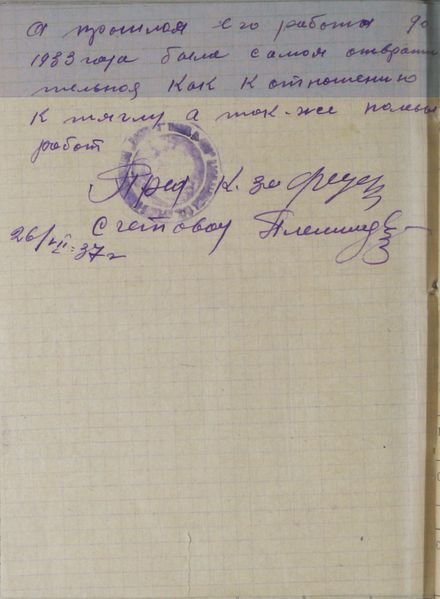 А прошлая его работа до
1933 года была самая отврати
тельная как к отношению
к тяглу а так-же полевых
работ
Пред к-за
Счетовод
26/VII-37 г